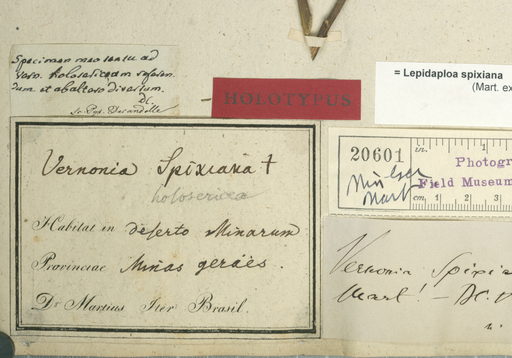 Specimen meo sensu ad
varr. holosericeam referen
dum et ab altero diversum.
DC.
HOLOTYPUS
= Lepidaploa spixiana
(Mart. ex
Vernonia Spixiana †
holosericea
Habitat in deserto Minarum
Provinciae Minas geraës.
Dr Martius Iter Brasil.
20601
Mart
in.
Photogr
Field Museum
cm. 1 2 3
Vernonia Spixia
Mart! - DC.